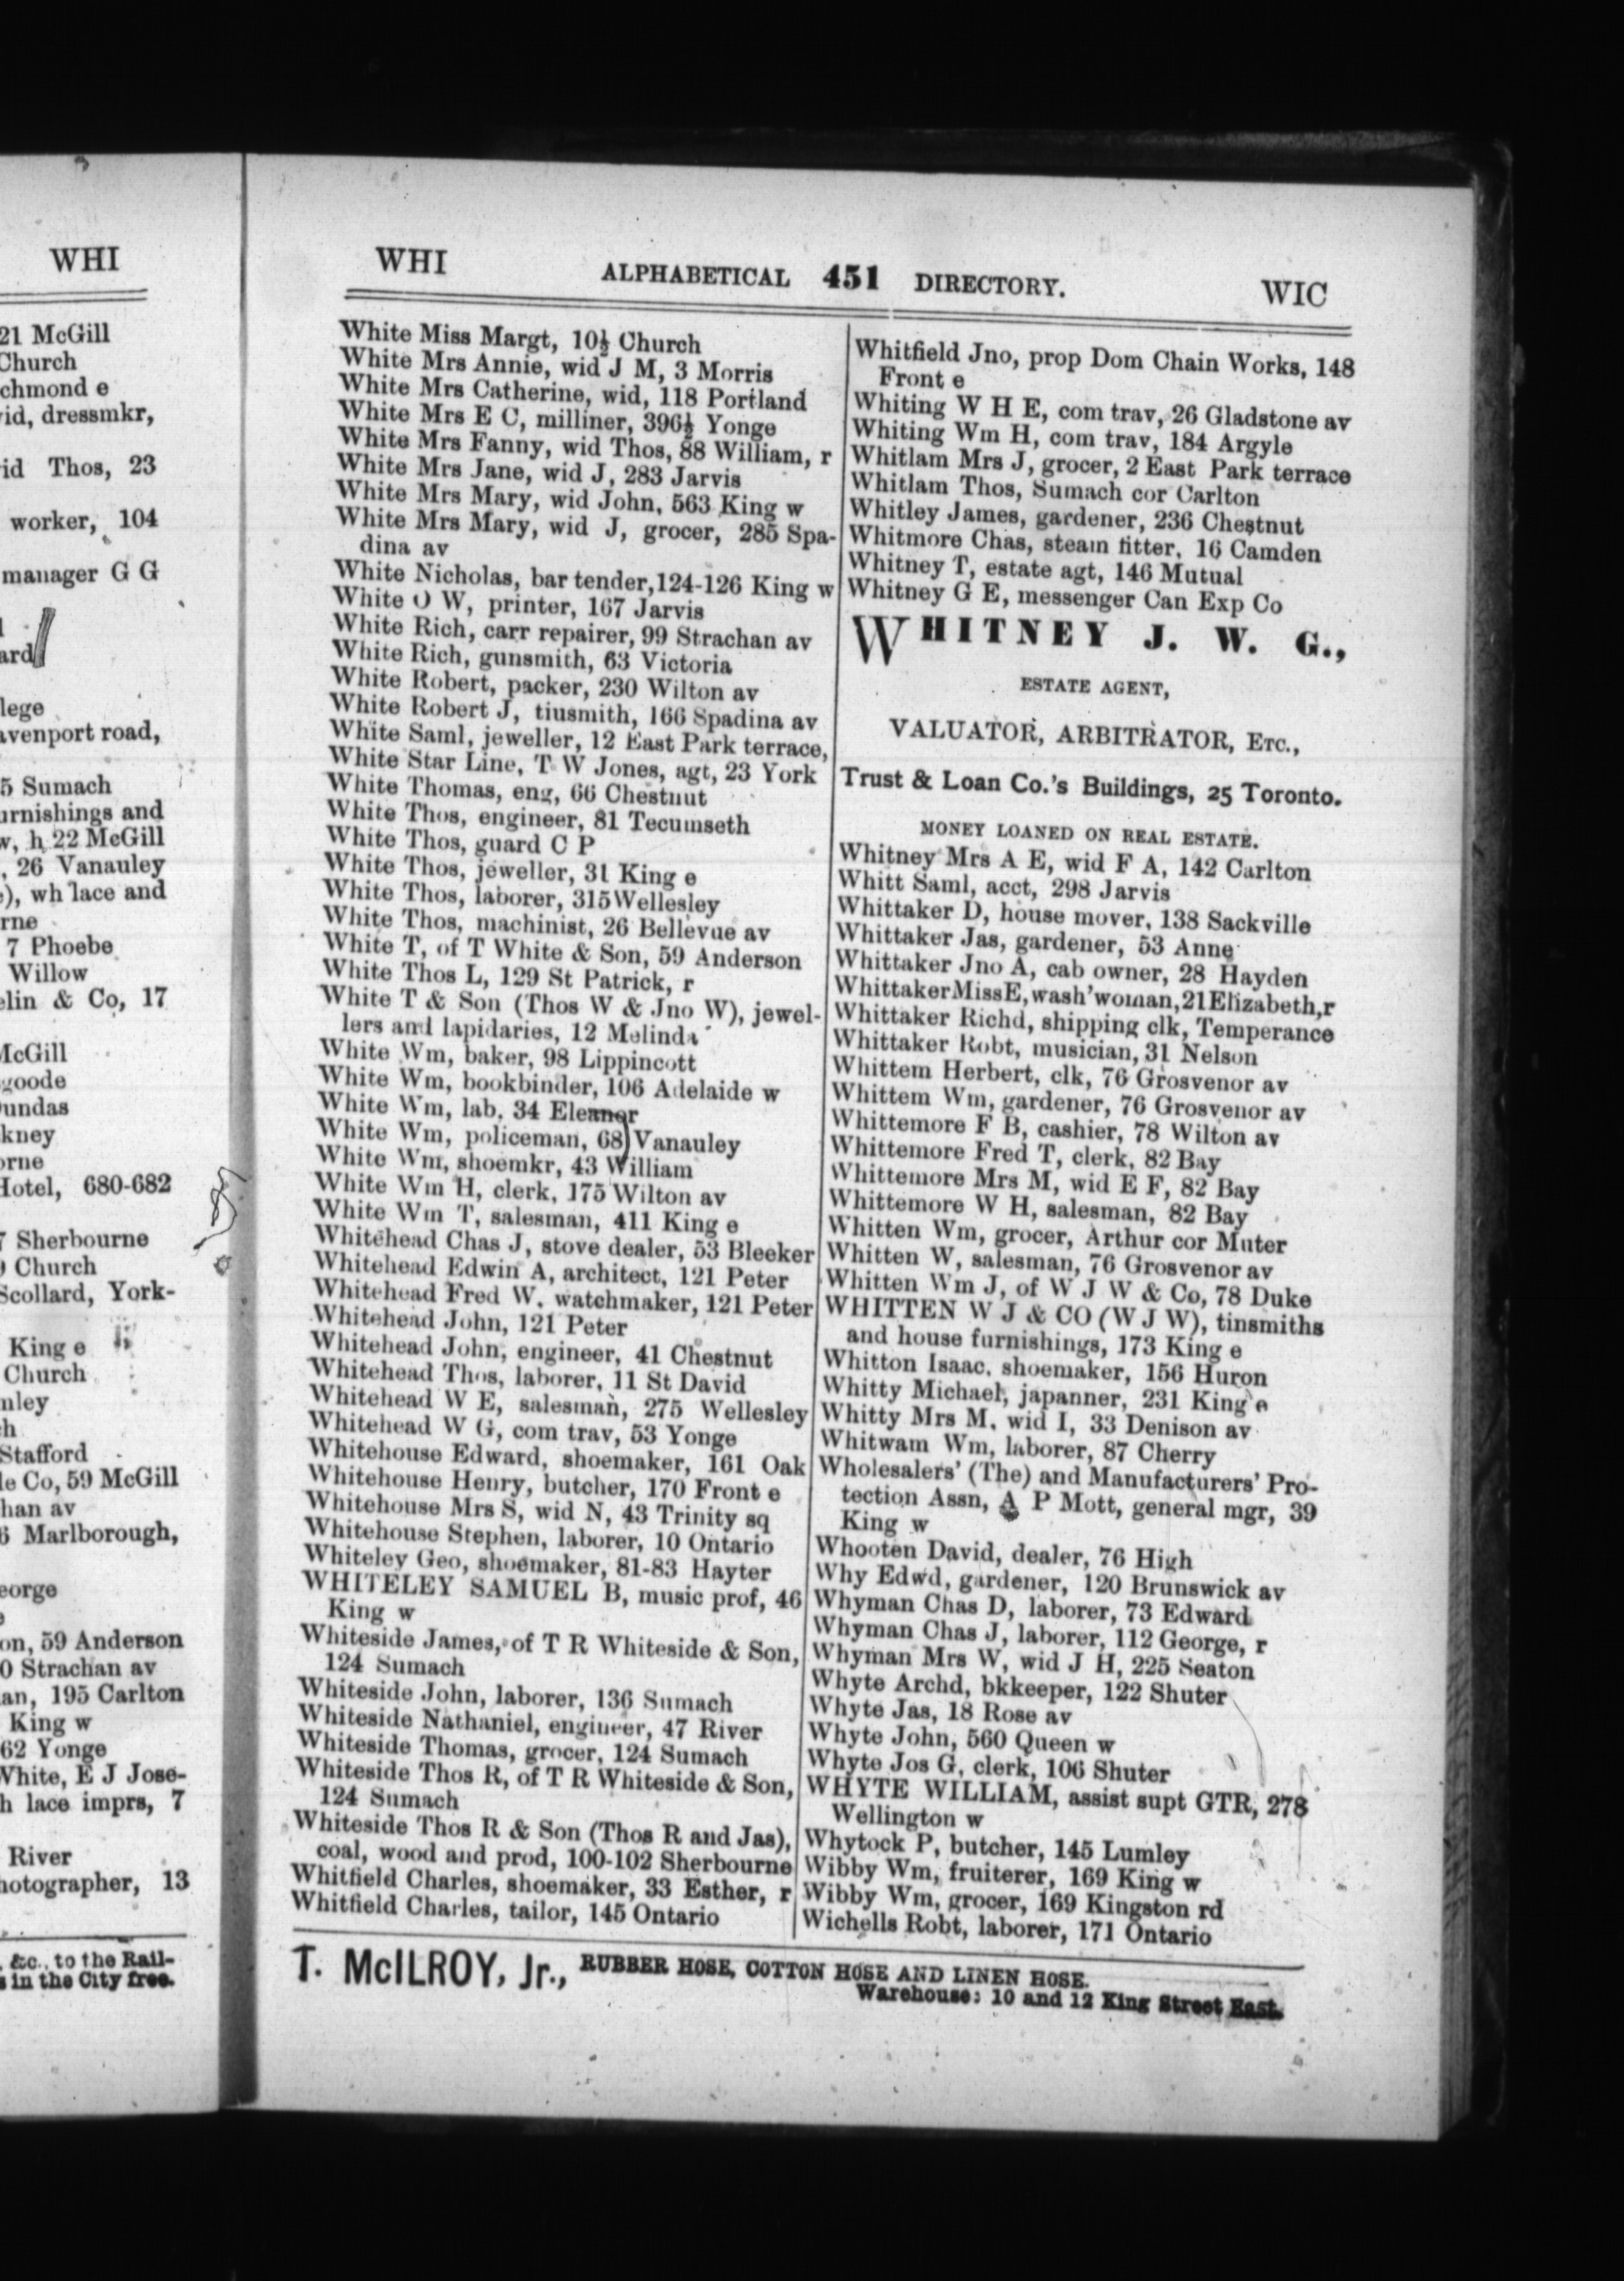 WHI
21 McGill
Church
chmond e
id, dressmkr,
id Thos, 23
worker, 104
manager G G
ard
lege
avenport road,
5 Sumach
urnishings and
w, h 22 McGill
, 26 Vanauley
), wh lace and
rne
7 Phoebe
Willow
elin & Co, 17
McGill
goode
undas
kney
orne
Hotel, 680-682
7 Sherbourne
Church
Scollard, York-
King e
Church
nley
h
Stafford
le Co, 59 McGill
han av
6 Marlborough,
eorge
on, 59 Anderson
0 Strachan av
an, 195 Carlton
King w
62 Yonge
White, E J Jose-
h lace imprs, 7
River
hotographer, 13
&c., to the Rail-
s in the City free.
WHI ALPHABETICAL 451 DIRECTORY. WIC
White Miss Margt, 10½ Church
White Mrs Annie, wid J M, 3 Morris
White Mrs Catherine, wid, 118 Portland
White Mrs E C, milliner, 396½ Yonge
White Mrs Fanny, wid Thos, 88 William, r
White Mrs Jane, wid J, 283 Jarvis
White Mrs Mary, wid John, 563 King w
White Mrs Mary, wid J, grocer, 285 Spa-
dina av
White Nicholas, bar tender,124-126 King w
White O W, printer, 167 Jarvis
White Rich, carr repairer, 99 Strachan av
White Rich, gunsmith, 63 Victoria
White Robert, packer, 230 Wilton av
White Robert J, tiusmith, 166 Spadina av
White Saml, jeweller, 12 East Park terrace,
White Star Line, T W Jones, agt, 23 York
White Thomas, eng, 66 Chestnut
White Thos, engineer, 81 Tecumseth
White Thos, guard C P
White Thos, jeweller, 31 King e
White Thos, laborer, 315 Wellesley
White Thos, machinist, 26 Bellevue av
White T, of T White & Son, 59 Anderson
White Thos L, 129 St Patrick, r
White T & Son (Thos W & Jno W), jewel-
lers and lapidaries, 12 Melinda
White Wm, baker, 98 Lippincott
White Wm, bookbinder, 106 Adelaide w
White Wm, lab, 34 Eleanor
White Wm, policeman, 68 Vanauley
White Wm, shoemkr, 43 William
White Wm H, clerk, 175 Wilton av
White Wm T, salesman, 411 King e
Whitehead Chas J, stove dealer, 53 Bleeker
Whitehead Edwin A, architect, 121 Peter
Whitehead Fred W, watchmaker, 121 Peter
Whitehead John, 121 Peter
Whitehead John, engineer, 41 Chestnut
Whitehead Thos, laborer, 11 St David
Whitehead W E, salesman, 275 Wellesley
Whitehead W G, com trav, 53 Yonge
Whitehouse Edward, shoemaker, 161 Oak
Whitehouse Henry, butcher, 170 Front e
Whitehouse Mrs S, wid N, 43 Trinity sq
Whitehouse Stephen, laborer, 10 Ontario
Whiteley Geo, shoemaker, 81-83 Hayter
WHITELEY SAMUEL B, music prof, 46
King w
Whiteside James, of T R Whiteside & Son,
124 Sumach
Whiteside John, laborer, 136 Sumach
Whiteside Nathaniel, engineer, 47 River
Whiteside Thomas, grocer, 124 Sumach
Whiteside Thos R, of T R Whiteside & Son,
124 Sumach
Whiteside Thos R & Son (Thos R and Jas),
coal, wood and prod, 100-102 Sherbourne
Whitfield Charles, shoemaker, 33 Esther, r
Whitfield Charles, tailor, 145 Ontario
Whitfield Jno, prop Dom Chain Works, 148
Front e
Whiting W H E, com trav, 26 Gladstone av
Whiting Wm H, com trav, 184 Argyle
Whitlam Mrs J, grocer, 2 East Park terrace
Whitlam Thos, Sumach cor Carlton
Whitley James, gardener, 236 Chestnut
Whitmore Chas, steam fitter, 16 Camden
Whitney T, estate agt, 146 Mutual
Whitney G E, messenger Can Exp Co
WHITNEY J. W. G.,
ESTATE AGENT,
VALUATOR, ARBITRATOR, ETC.,
Trust & Loan Co.'s Buildings, 25 Toronto.
MONEY LOANED ON REAL ESTATE.
Whitney Mrs A E, wid F A, 142 Carlton
Whitt Saml, acct, 298 Jarvis
Whittaker D, house mover, 138 Sackville
Whittaker Jas, gardener, 53 Anne
Whittaker Jno A, cab owner, 28 Hayden
WhittakerMissE,wash'woman,21Elizabeth,r
Whittaker Richd, shipping clk, Temperance
Whittaker Robt, musician, 31 Nelson
Whittem Herbert, clk, 76 Grosvenor av
Whittem Wm, gardener, 76 Grosvenor av
Whittemore F B, cashier, 78 Wilton av
Whittemore Fred T, clerk, 82 Bay
Whittemore Mrs M, wid E F, 82 Bay
Whittemore W H, salesman, 82 Bay
Whitten Wm, grocer, Arthur cor Muter
Whitten W, salesman, 76 Grosvenor av
Whitten Wm J, of W J W & Co, 78 Duke
WHITTEN W J & CO (W J W), tinsmiths
and house furnishings, 173 King e
Whitton Isaac, shoemaker, 156 Huron
Whitty Michael, japanner, 231 King e
Whitty Mrs M, wid I, 33 Denison av
Whitwam Wm, laborer, 87 Cherry
Wholesalers' (The) and Manufacturers' Pro-
tection Assn, A P Mott, general mgr, 39
King w
Whooten David, dealer, 76 High
Why Edwd, gardener, 120 Brunswick av
Whyman Chas D, laborer, 73 Edward
Whyman Chas J, laborer, 112 George, r
Whyman Mrs W, wid J H, 225 Seaton
Whyte Archd, bkkeeper, 122 Shuter
Whyte Jas, 18 Rose av
Whyte John, 560 Queen w
Whyte Jos G, clerk, 106 Shuter
WHYTE WILLIAM, assist supt GTR, 278
Wellington w
Whytock P, butcher, 145 Lumley
Wibby Wm, fruiterer, 169 King w
Wibby Wm, grocer, 169 Kingston rd
Wichells Robt, laborer, 171 Ontario
T. McILROY, Jr., RUBBER HOSE, COTTON HOSE AND LINEN HOSE.
Warehouse: 10 and 12 King Street East.